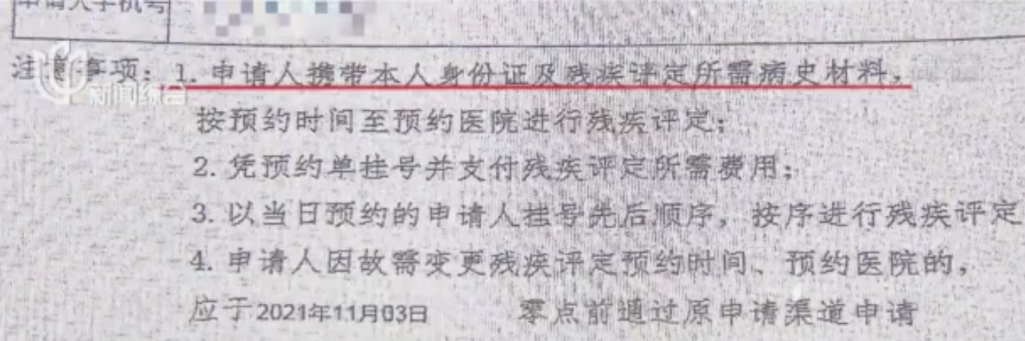 申请人手机号
注意事项：1. 申请人携带本人身份证及残疾评定所需病史材料，
新闻综合
按预约时间至预约医院进行残疾评定；
2. 凭预约单挂号并支付残疾评定所需费用；
3. 以当日预约的申请人挂号先后顺序，按序进行残疾评定
4. 申请人因故需变更残疾评定预约时间、预约医院的，
应于2021年11月03日 零点前通过原申请渠道申请